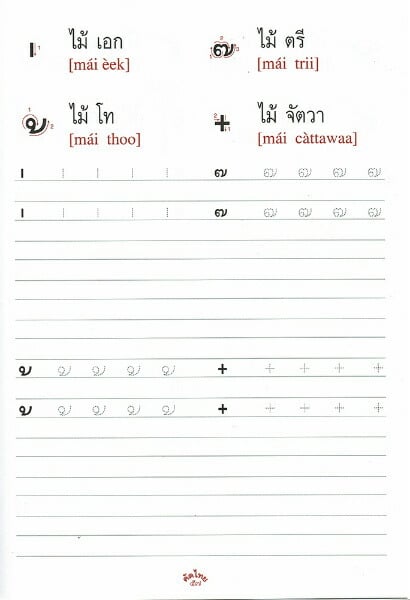 ่ ไม้ เอก
[mái èek]
๊ ไม้ ตรี
[mái trii]
้ ไม้ โท
[mái thoo]
๋ ไม้ จัตวา
[mái càttawaa]
่ ่ ่ ่ ่ ๊ ๊ ๊ ๊ ๊
่ ่ ่ ่ ่ ๊ ๊ ๊ ๊ ๊
้ ้ ้ ้ ้ ๋ ๋ ๋ ๋ ๋
้ ้ ้ ้ ้ ๋ ๋ ๋ ๋ ๋
คัดไทย